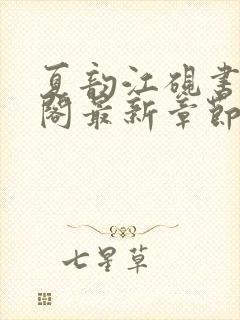 夏韵江砚书
阁最新章节
七星草